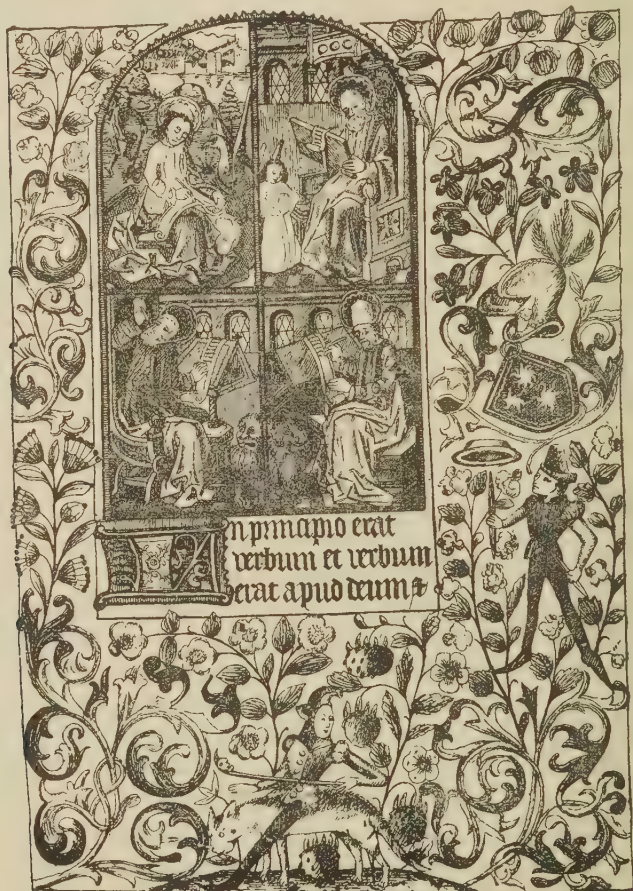 In principio erat
verbum et verbum
erat apud deum &